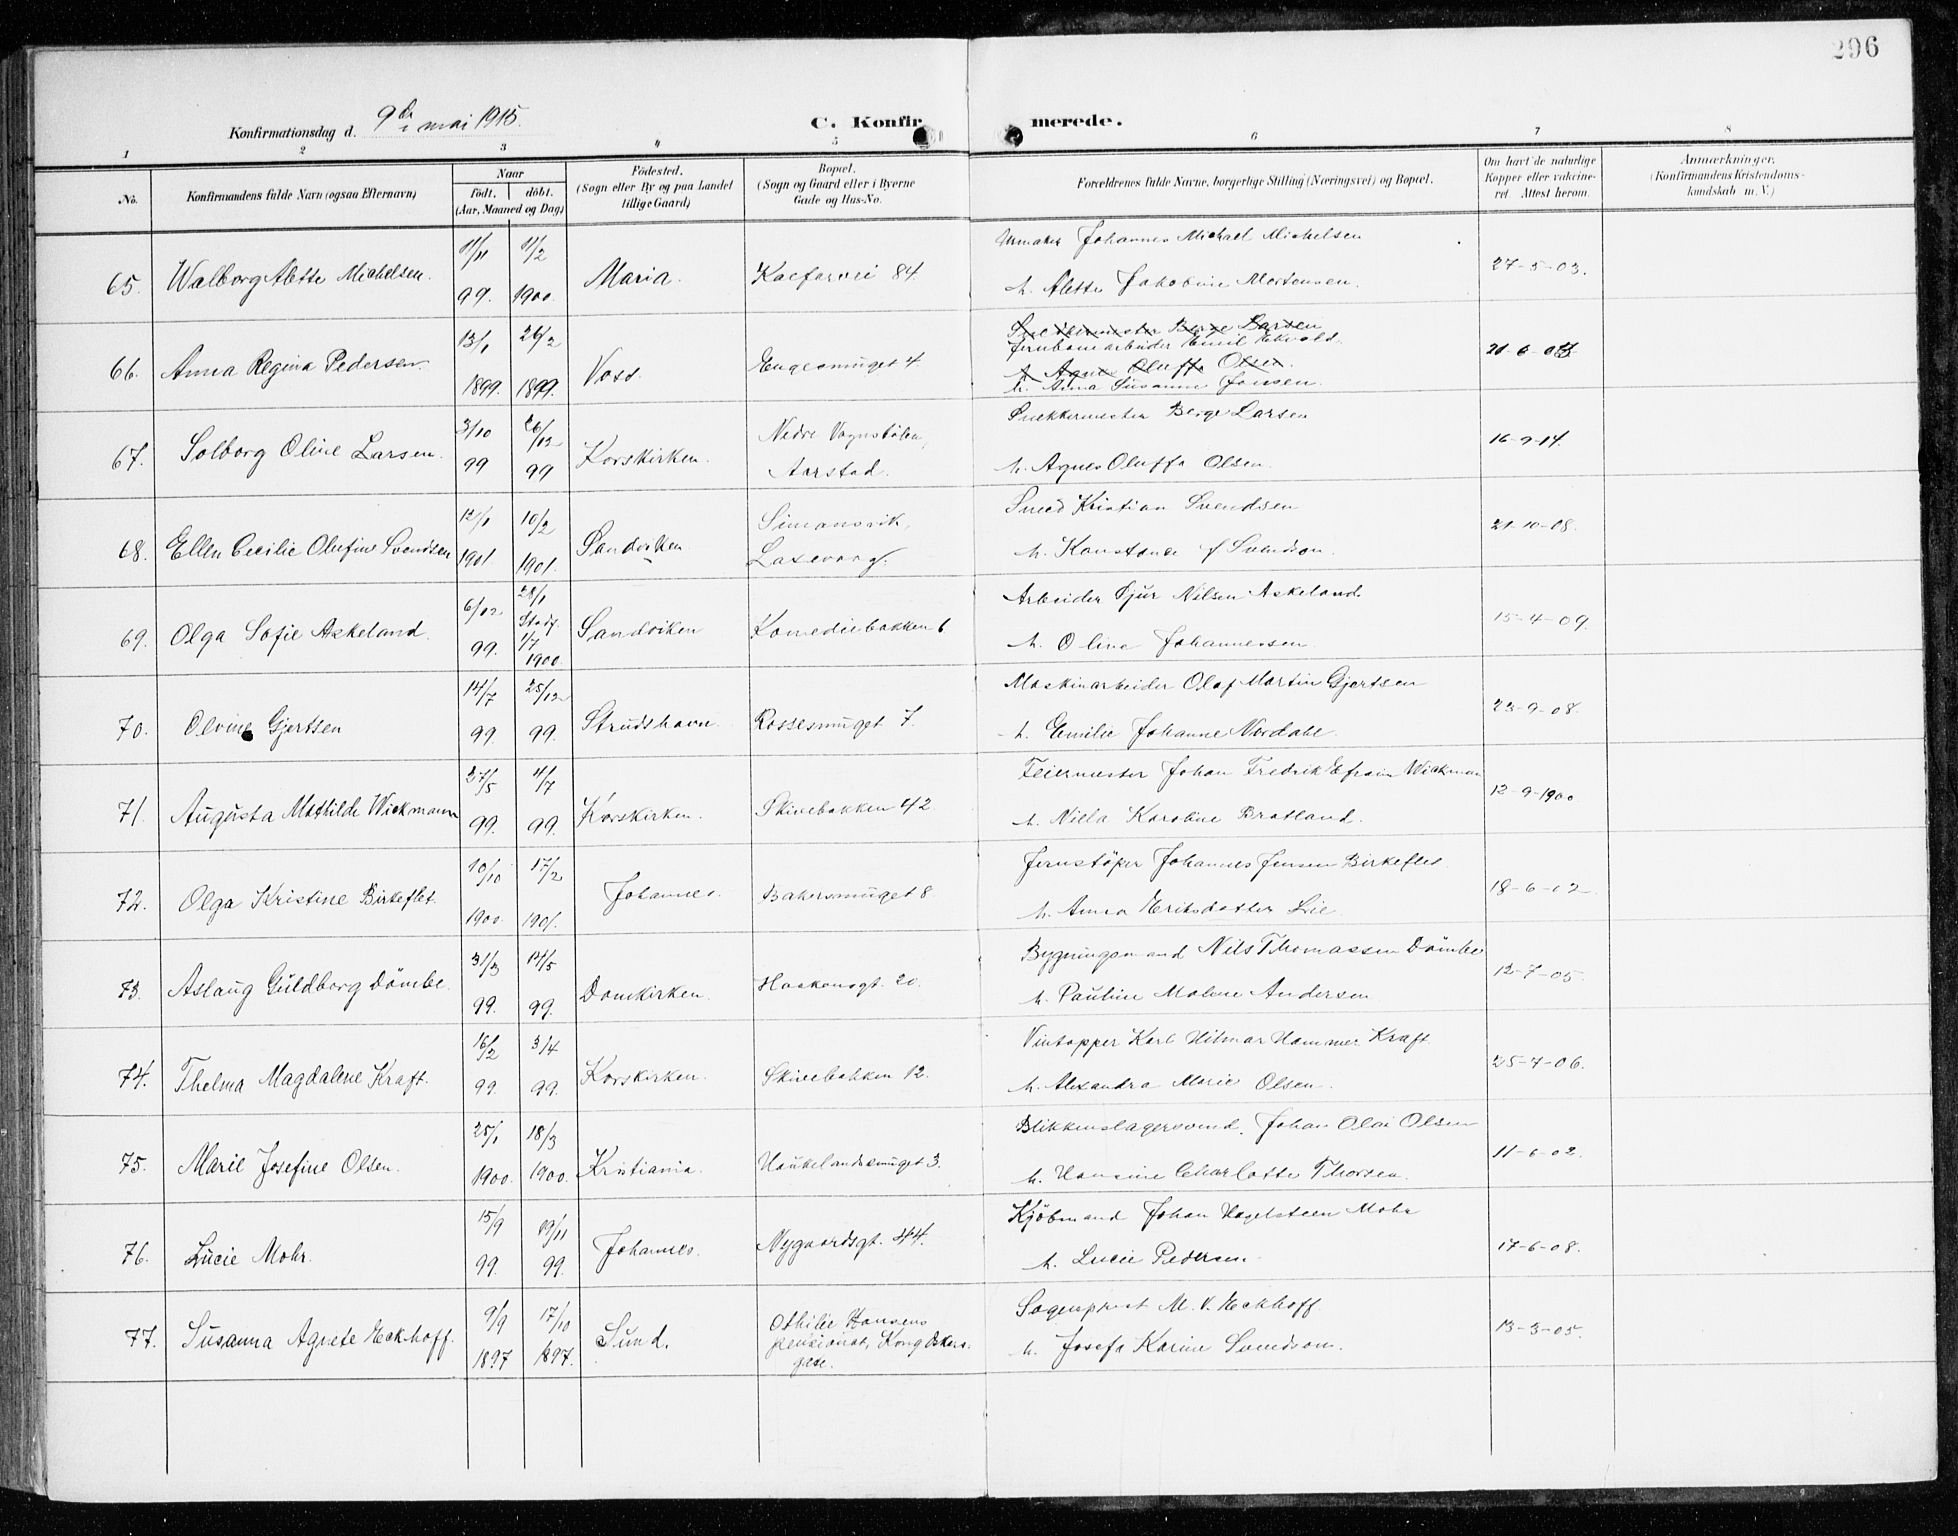 296
Konfirmationsdag d. 9de mai 1915.
C. Konfirmerede.
1 2 3 4 5 6 7 8
No.
Konfirmandens fulde Navn (ogsaa Efternavn)
Naar
födt. döbt.
(Aar, Maaned og Dag)
Födested.
(Sogn eller By og paa Landet
tillige Gaard)
Bopæl.
(Sogn og Gaard eller i Byerne
Gade og Hus-No.
Forældrenes fulde Navne, borgerlige Stilling (Næringsvei) og Bopæl.
Om havt de naturlige
Kopper eller vaccine-
ret. Attest herom.
Anmærkninger.
(Konfirmandens Kristendoms-
kundskab m. V.)
65. Walborg Alette Michelsen. 11/11 99. 11/2 1900. Maria. Kalfarvei 84 Urmaker Johannes Michael Michelsen
h. Alette Jakobine Mortensen. 27-5-03.
66. Anna Regina Pedersen. 13/1 1899. 26/2 1899. Voss. Engesmuget 4. Snekkermester Berge Larsen
Jernbanearbeider Emil Ekvold.
h. Agnes Oluffa Olsen.
h. Anna Susanne Jonsen. 21-6-03
67. Solborg Oline Larsen. 3/10 99 26/12 99 Korskirken. Nedre Vognstølen,
Aarstad. Snekkermester Berge Larsen
h. Agnes Oluffa Olsen. 16-9-14.
68. Ellen Cecilie Olufine Svendsen 12/1 1901. 10/2 1901. Sandviken Simonsvik,
Laxevaag. Smed Kristian Svendsen
h. Konstance f. Svendsen. 21-10-08.
69. Olga Sofie Askeland. 6/12 99. 28/1 Stadf. 1/7 1900. Sandviken Komediebakken 6 Arbeider Sjur Nilsen Askeland.
h. Oline Johannessen. 15-4-09.
70. Olvine Gjertsen 14/7 99. 25/12 99. Strudshavn. Rossesmuget 7. Maskinarbeider Olaf Martin Gjertsen
h. Emilie Johanne Nordahl. 23-9-08.
71. Augusta Mathilde Wickmann 27/5 99. 4/7 99. Korskirken. Skivebakken 42 Feiermester Johan Fredrik Efraim Wickman
h. Nilla Karoline Bratland. 12-9-1900
72. Olga Kristine Birkeflet. 10/10 1900. 17/2 1901. Johannes. Bakersmuget 8 Jernstöper Johannes Jensen Birkeflet.
h. Anna Eriksdatter Lie. 18-6-02.
73. Aslaug Guldborg Dömbe. 31/3 99. 14/5 99. Domkirken. Haakonsgt. 20. Bygningsmand Nils Thomassen Dömbe
h. Pauline Malene Andersen 12-7-05.
74. Thelma Magdalene Kraft. 16/2 99. 3/4 99. Korskirken. Skivebakken 12. Vintapper Karl Hilmar Hammer Kraft.
h. Alexandra Marie Olsen. 25-7-06.
75. Marie Josefine Olsen. 25/1 1900. 18/3 1900. Kristiania. Haukelandsmuget 3. Blikkenslagersvend. Johan Olai Olsen
h. Hansine Charlotte Thorsen. 11-6-02.
76. Lucie Mohr. 15/9 99. 19/11 99. Johannes. Nygaardsgt. 44. Kjöbmand Johan Hagelsteen Mohr
h. Lucie Pedersen. 17-6-08.
77. Susanna Agnete Eckhoff. 9/9 1897 17/10 1897. Sund. Othilie Hansens
pensionat, Kong Oskars-
gate. Sogneprest M. V. Eckhoff.
h. Josefa Karine Svendsen. 13-3-05.